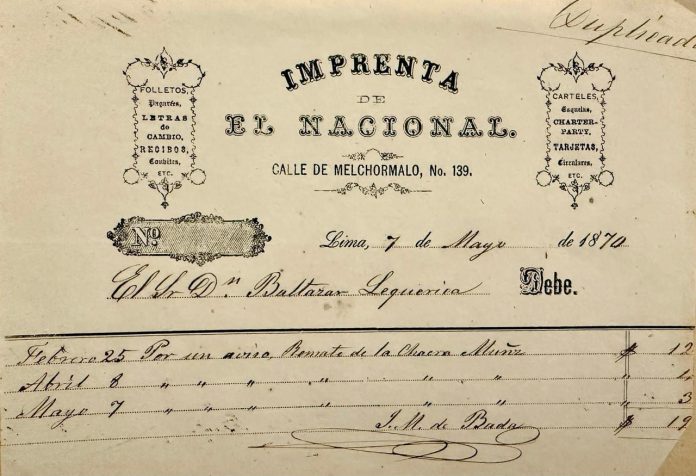 Duplicado
IMPRENTA
DE
EL NACIONAL.
CALLE DE MELCHORMALO, No. 139.
FOLLETOS,
Pagarées,
LETRAS
de
CAMBIO,
RECIBOS,
Convites,
ETC.
CARTELES,
Esquelas,
CHARTER-
PARTY,
TARJETAS,
Circulares,
ETC.
No.
Lima, 7 de Mayo de 1870
El Sr Dn Baltazar Lequerica Debe.
Febrero 25 Por un aviso, Remate de la Chacra Muñz $ 12
Abril 8 " " " " " " " 4
Mayo 7 " " " " " " " 3
J. M. de Bada $ 19